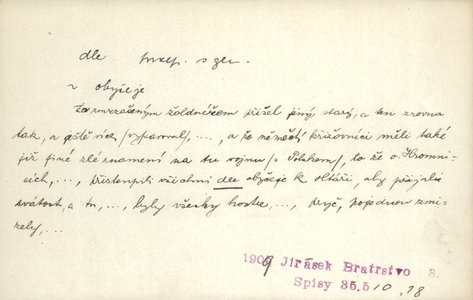 dle
v obyčeje
Za zmrzačeným žoldnéřem přišel jiný, starý, a ten zrovna
tak, a ještě více vypravoval, ..., a že němečtí křižovníci měli také
již jiné zlé znamení na tu vojnu s Polskem, to že o Hromni-
cích, ..., přistoupili všichni dle obyčeje k oltáři, aby přijali
svátost, a tu, ..., byly všecky hostie, ..., pryč, pojednou zmi-
zely, ...
1909 Jirásek Bratrstvo 3.
Spisy 35.510.18